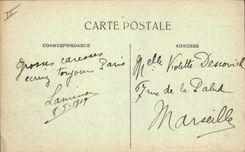 III
CARTE POSTALE
CORRESPONDANCE
ADRESSE
Grosses caresses
écrivez toujours Paris
8-5-1919
Melle Violette
67 rue de la Palud
Marseille